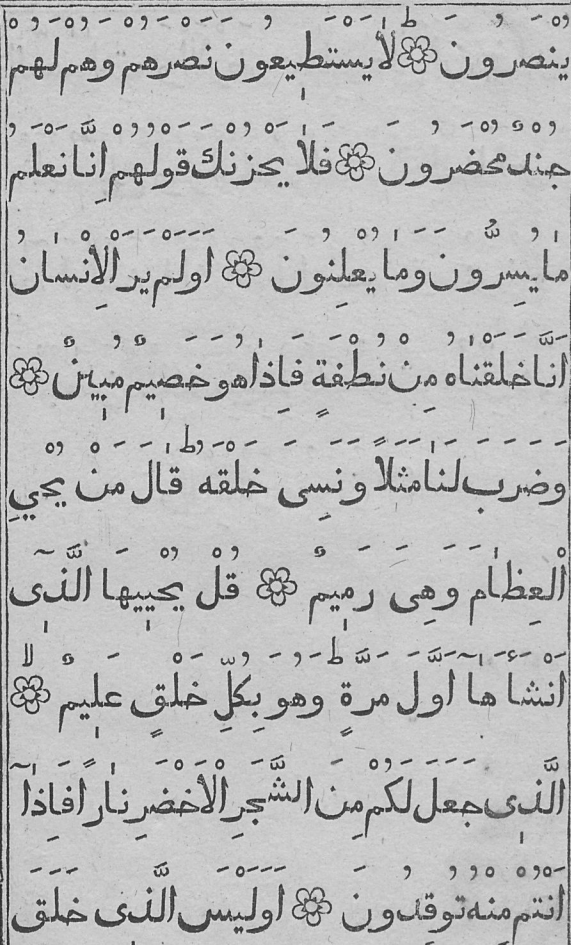 يُنْصَرُونَ ۞ لَا يَسْتَطٖيعُونَ نَصْرَهُمْ وَهُمْ لَهُمْ
جُنْدٌ مُحْضَرُونَ ۞ فَلَا يَحْزُنْكَ قَوْلُهُمْ اِنَّا نَعْلَمُ
مَا يُسِرُّونَ وَمَا يُعْلِنُونَ ۞ اَوَلَمْ يَرَ الْاِنْسَانُ
اَنَّا خَلَقْنَاهُ مِنْ نُطْفَةٍ فَاِذَا هُوَ خَصٖيمٌ مُبٖينٌ ۞
وَضَرَبَ لَنَا مَثَلًا وَنَسِىَ خَلْقَهُ ؕ قَالَ مَنْ يُحْيِ
الْعِظَامَ وَهِىَ رَمٖيمٌ ۞ قُلْ يُحْيٖيهَا الَّذٖٓى
اَنْشَاَهَٓا اَوَّلَ مَرَّةٍ ؕ وَهُوَ بِكُلِّ خَلْقٍ عَلٖيمٌ ۙ ۞
الَّذٖى جَعَلَ لَكُمْ مِنَ الشَّجَرِ الْاَخْضَرِ نَارًا فَاِذَٓا
اَنْتُمْ مِنْهُ تُوقِدُونَ ۞ اَوَلَيْسَ الَّذٖى خَلَقَ